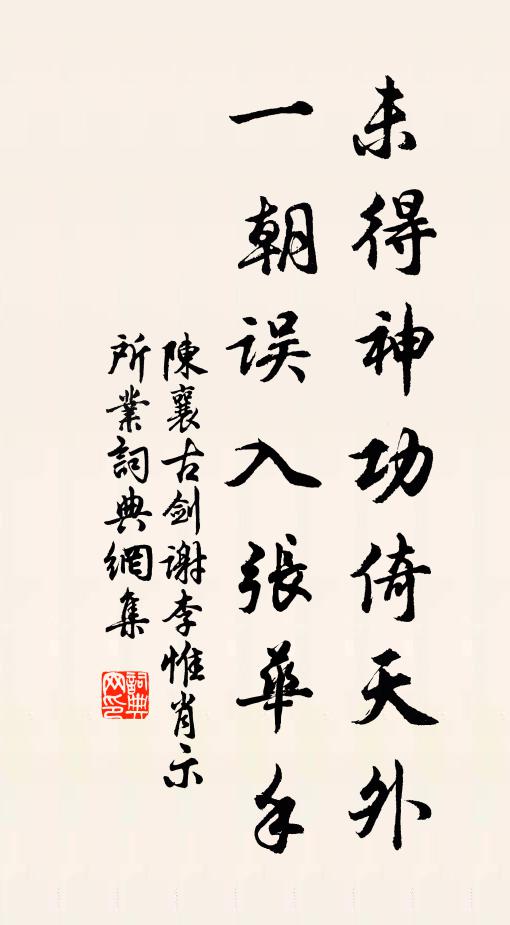 未得神功倚天外
一朝误入張華手
陳襄古剑谢李惟肖示
所業詞典網集
詞典网印